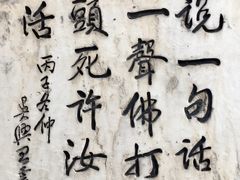 說一句話
一聲佛打
頭死许汝
活
丙子冬仲
吴興王